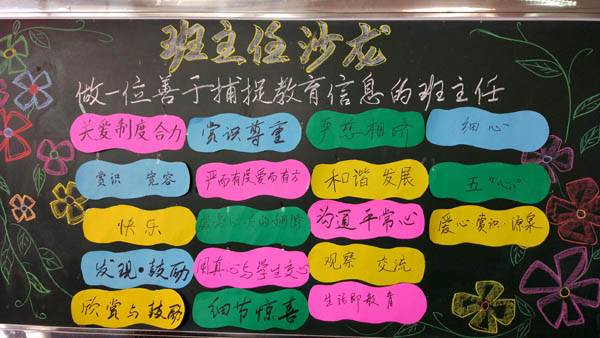 班主任沙龙
做一位善于捕捉教育信息的班主任
关爱制度合力
赏识尊重
严慈相济
细心
赏识 宽容
严而有度爱而有方
和谐 发展
五“心”
快乐
沟通平常心
爱心·赏识·源泉
发现·鼓励
用真心与学生交心
观察 交流
欣赏与鼓励
细节惊喜
生活即教育